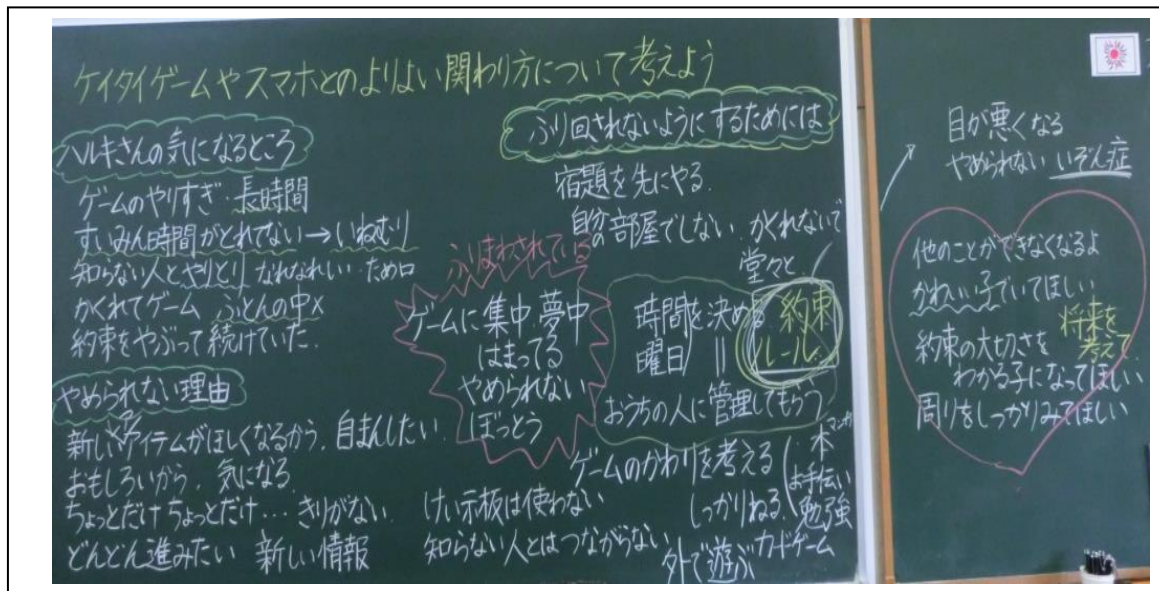 ケイタイゲームやスマホとのよりよい関わり方について考えよう
ハルキさんの気になるところ
ゲームのやりすぎ・長時間
すいみん時間がとれてない→いねむり
知らない人とやりとり なれなれしい・ため口
かくれてゲーム ふとんの中×
約束をやぶって続けていた。
やめられない理由
新しいアイテムがほしくなるから、自まんしたい
おもしろいから、気になる
ちょっとだけ ちょっとだけ… きりがない
どんどん進みたい 新しい情報
ふりまわされている
ゲームに集中・夢中
はまってる
やめられない
ぼっとう
ふり回されないようにするためには
宿題を先にやる。
自分の部屋でしない かくれないで
堂々と
時間を決める
曜日
||
約束
ルール
おうちの人に管理してもらう
ゲームのかわりを考える
本 マンガ
お手伝い
勉強
しっかりねる
カードゲーム
外で遊ぶ
けい示板は使わない
知らない人とはつながらない
目が悪くなる
やめられない いぞん症
他のことができなくなるよ
かわいい子でいてほしい
将来を
考えて
約束の大切さを
わかる子になってほしい
周りをしっかりみてほしい